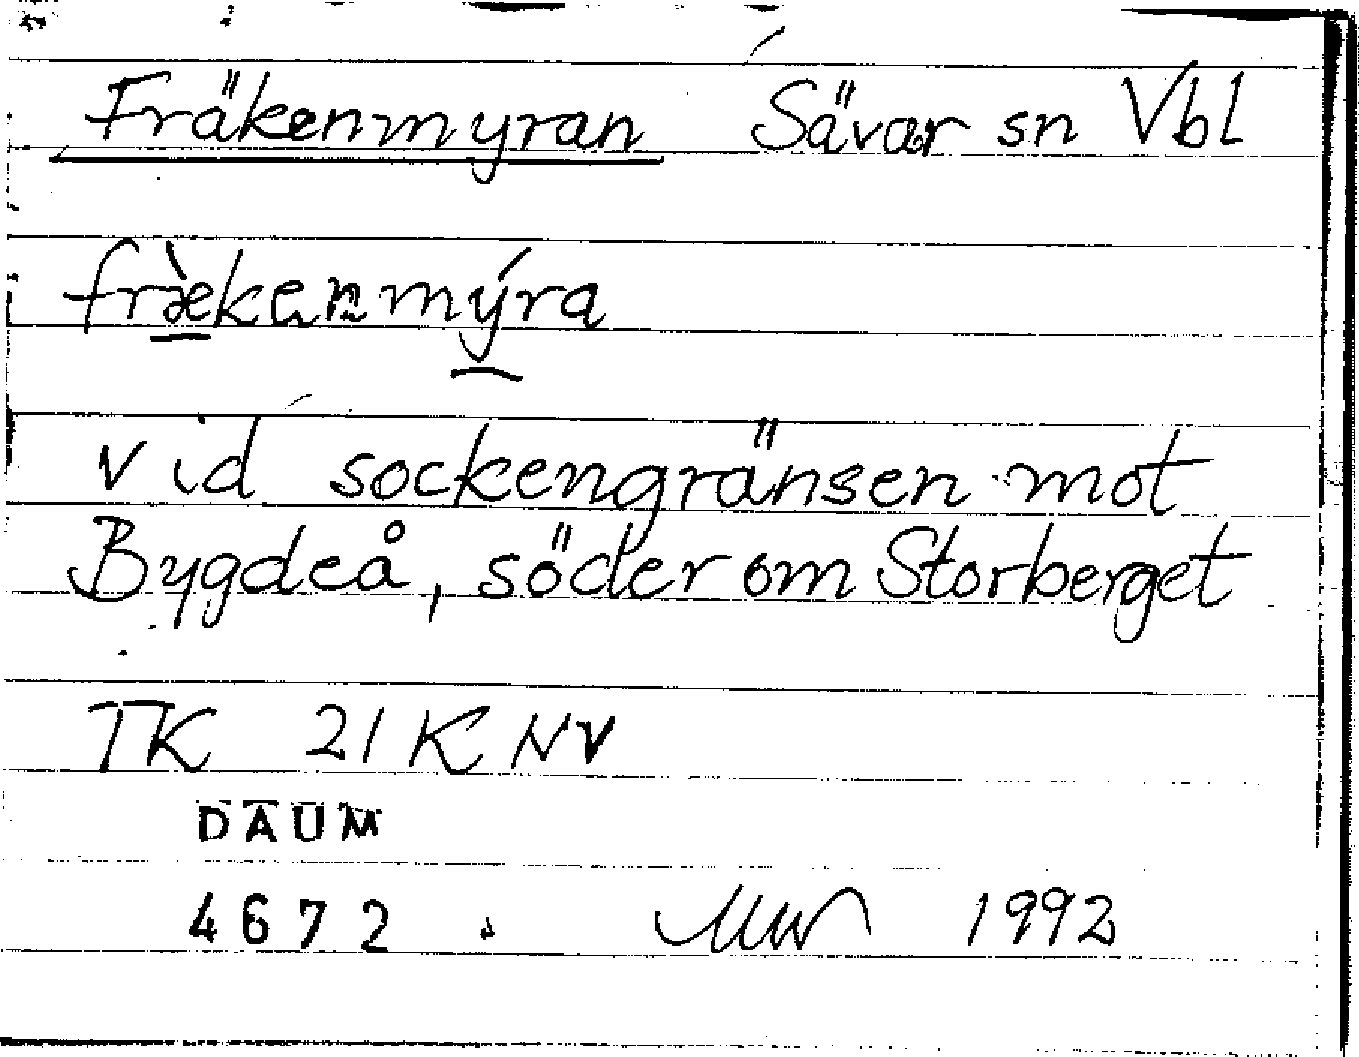 Fräkenmyran Sävar sn Vbl
fræ̀kenmýra
vid sockengränsen mot
Bygdeå, söder om Storberget
TK 21K NV
DAUM
4672. 1992